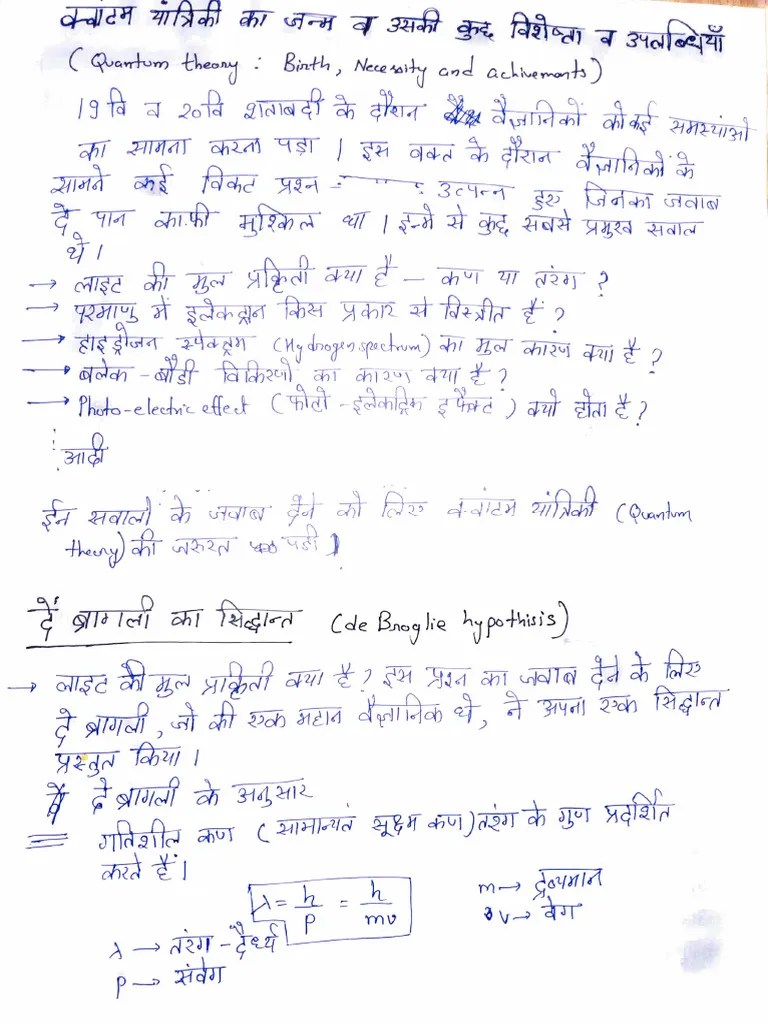 क्वांटम यांत्रिकी का जन्म व उसकी कुछ विशेष्ता व उपलब्धियाँ
(Quantum theory : Birth, Necessity and achivements)
19वि व 20वि शताबदी के दौरान वैज्ञानिकों को कई समस्यांओ
का सामना करना पड़ा । इस वक्त के दौरान वैज्ञानिकों के
सामने कई विकट प्रश्न उत्पन्न हुए जिनका जवाब
दे पान काफी मुश्किल था । इन्मे से कुछ सबसे प्रमुख सवाल
थे ।
→ लाइट की मुल प्रक्रिती क्या है – कण या तंरग ?
→ परमाणु में इलेक्ट्रान किस प्रकार से विस्त्रीत हैं ?
→ हाइड्रोजन स्पेक्ट्रम (Hydrogen spectrum) का मुल कारण क्या है ?
→ बलेक-बौडी विकिरणो का कारण क्या है ?
→ Photo-electric effect (फोटो-इलेकट्रिक इफैक्ट) क्यो होता है ?
आदी
ईन सवालो के जवाब देने को लिए क्वांटम यांत्रिकी (Quantum
theory) की जरुरत पडी ।
दे ब्रागली का सिद्धान्त (de Broglie hypothisis)
→ लाइट की मुल प्राक्रिती क्या है ? इस प्रश्न का जवाब देने के लिए
दे ब्रागली, जो की एक महान वैज्ञानिक थे, ने अपना एक सिद्धान्त
प्रस्तुत किया ।
दे ब्रागली के अनुसार
गतिशील कण (सामान्यतं सूक्ष्म कण) तरंग के गुण प्रदर्शित
करते हैं ।
λ = h/p = h/mv
m → द्रव्यमान
v → वेग
λ → तरंग-दैर्ध्य
p → संवेग